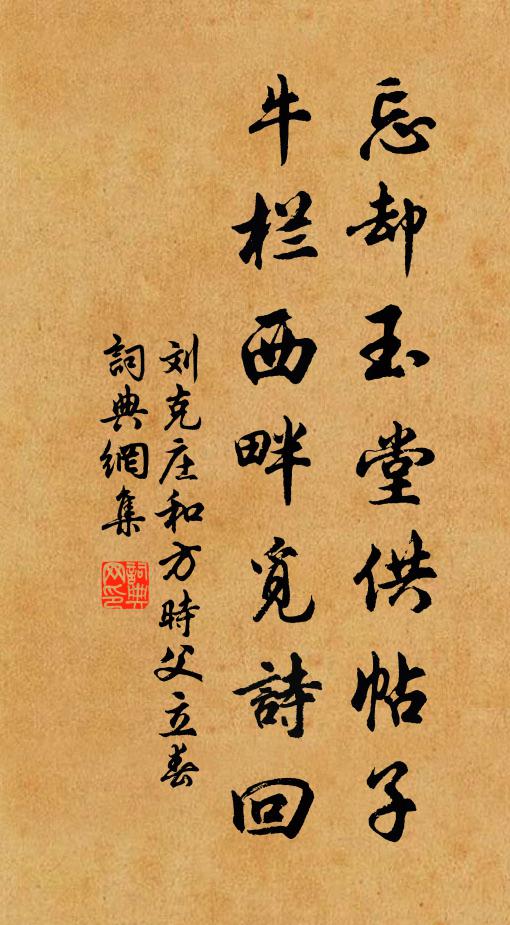 忘却玉堂供帖子
牛栏西畔觅詩回
刘克庄和方時父立春
詞典網集
詞典网印